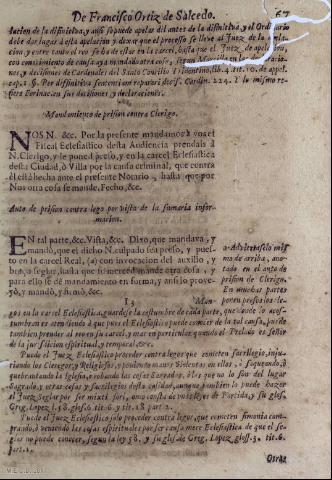 De Francisco Ortiz de Salcedo. 67
tacion de la difinitiva, y assi se puede apelar del antes de la difinitiva, y el Ordinario
debe dar lugar à esta apelacion y dexar que el processo se lleve al Juez de la
cion, y entre tanto el reo se ha de estar en la carcel, hasta que el Juez de apelacion,
con conocimiento de causa aya mandado otra cosa, segun
nes, y decisiones de Cardenales del Santo Concilio Tridentino, lib. 4. tit. 10. de appel.
cap. 1. §. Por difinitiva
fiere en sus decisiones, y declaraciones.
Mandamiento de prision contra Clerigo.
NOS N. &c. Por la presente mandamos à vos el
Fiscal Eclesiastico desta Audiencia prendais à
N. Clerigo, y le poned preso, y en la carcel Eclesiastica
desta Ciudad, ò Villa por la causa criminal, que contra
èl està hecha ante el presente Notario, hasta que por
Nos otra cosa se mande, Fecho, &c.
Auto de prision contra lego por vista de la sumaria infor-
macion.
EN tal parte, &c. Vista, &c. Dixo, que mandava, y
mandò, que el dicho N. culpado sea preso, y pues-
to en la carcel Real, (a) con invocacion del auxilio, y
braço seglar, hasta que su merced mande otra cosa, y
para ello se dè mandamiento en forma, y assi lo prove-
yò, y mandò, y firmò, &c.
a Adviertase lo mis
mo de arriba, ano-
tado en el auto de
prision de Clerigo.
En muchas partes
ponen presos los le-
I 3 Man-
gos en la carcel Eclesiastica, guardese la costumbre de cada parte, que
tumbraren se atendiendo à que pues el Eclesiastico puede conocer de la tal causa, puede
tambien prender al reo en su carcel, y mas en particular quando el Prelado es señor
de la jurisdicion espiritual, y temporal, &c.
Puede el Juez Eclesiastico proceder contra legos que cometen sacrilegio, inju-
riando los Clerigos y Religiosos, ò poniendo manos violentas en ellos, ò saqueando, ò
quebrantando la Iglesia, ò robando las cosas sagradas, ò las que no lo son del lugar
Sagrado, y otras cosas y sacrilegios desta calidad, aunque tambien lo puede hazer
el Juez Seglar por ser mixti fori, como consta de unas leyes de Partida, y su glos.
Greg. Lopez l. 58. glos. 6. tit. 6. y tit. 18. part. 1.
Puede el Juez Eclesiastico solo proceder contra legos, que cometen simonia com-
prando, ò vendiendo las cosas espirituales por ser causa mere Eclesiastica de que el se-
glar no puede conocer, segun la ley 58. y su glos. de Greg. Lopez, gloss. 3. tit. 6.
part. 1.
Otras